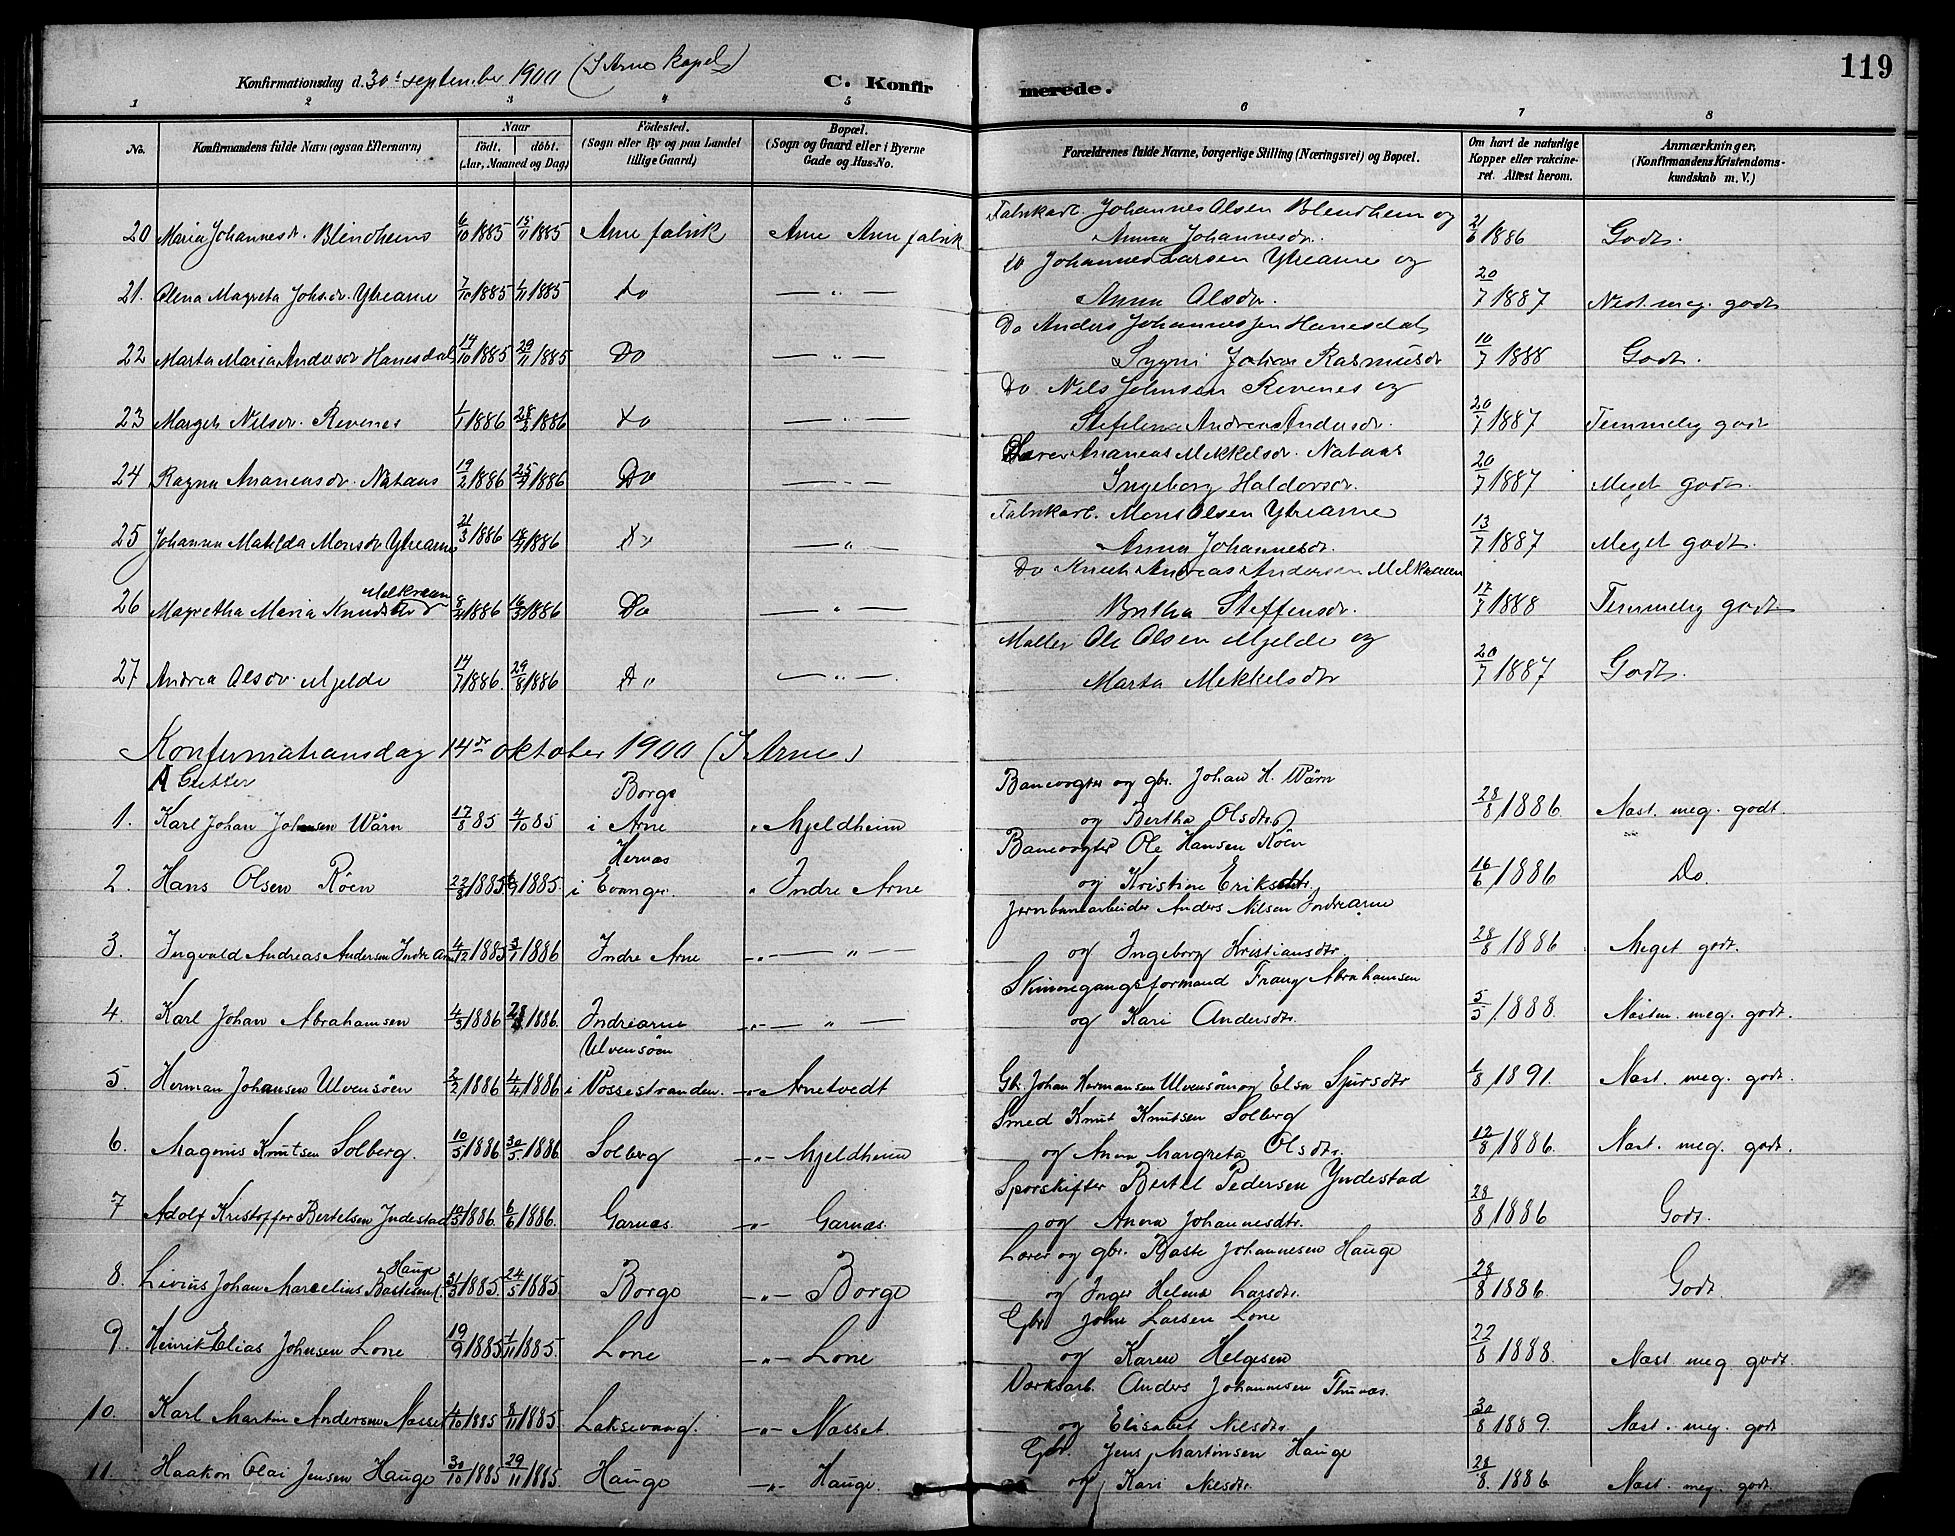 119
Konfirmationsdag d. 30t september 1900 (I Arne Kapel)
C. Konfirmerede.
1 2 3 4 5 6 7 8
No. Konfirmandens fulde Navn (ogsaa Efternavn) Naar født. døbt. (Aar, Maaned og Dag) Födested. (Sogn eller By og paa Landet tillige Gaard) Bopæl. (Sogn og Gaard eller i Byerne Gade og Hus-No. Forældrenes fulde Navne, borgerlige Stilling (Næringsvei) og Bopæl. Om havt de naturlige Kopper eller vakcineret. Attest herom. Anmærkninger, (Konfirmandens Kristendomskundskab m. V.)
Fabrikarb. Johannes Olsen Blendheim og
20 Maria Johannesdr. Blindheim 6/10 1885 15/11 1885 Arne fabrik Arne Arne fabrik Anna Johannesdr. 21/6 1886 Godt.
do Johannes Larsen Ytrearne og
21. Olena Magreta Johsdr. Ytrearne 7/10 1885 1/11 1885 Do — " — Anna Olsdr. 20/7 1887 Nest. meg. godt
Do Anders Johannessen Hanesdal
22 Marta Maria Andersdr Hanesdal 14/10 1885 29/11 1885 Do — " — Sygni Johan Rasmusdr 10/7 1888 Godt.
Do Nils Johnsen Revenes og
23 Margit Nilsdr. Revenes 1/1 1886 28/2 1886 Do — " — Andrea Andersdr. 20/7 1887 Temmelig godt
Ananias Mekkelsdr. Nataas
24 Ragna Ananiasdr. Nataas 19/2 1886 25/4 1886 Do — " — Ingeborg Haldorsdr. 20/7 1887 Meget godt.
Fabrikarb. Mons Olsen Ytrearne
25 Johanna Matilda Monsdr Ytrearne 21/3 1886 18/4 1886 Do — " — Anna Johannesdr. 13/7 1887 Meget godt.
Do Knut Andreas Andersen Melkraaen
Melkraaen
26 Magretha Maria Knudsdr 8/4 1886 16/5 1886 Do — " — Britha Steffensdr. 17/7 1888 Temmelig godt
Maller Ole Olsen Mjelde og
27 Andrea Olsdr. Mjelde 14/7 1886. 29/8 1886 Do — " — Marta Mekkelsdr 20/7 1887 Godt.
Konfirmationsdag 14de oktober 1900 (I Arne)
A Gutter Borge Banevogter og gbr. Johan H. Wärn
1. Karl Johan Johansen Wärn 17/8 85 4/10 85 i Arne " Mjeldheim og Bertha Olsdtr. 28/8 1886 Næst. meg. godt.
Hernæs Banevogter Ole Hansen Röen
2. Hans Olsen Röen 22/8 1885 1885. i Evanger. " Indre Arne og Kristine Eriksdtr. 16/6 1886 Do.
Jernbanearbeider Anders Nilsen Indrearne
3. Ingvald Andreas Andersen Indre Arne 4/12 1885 3/1 1886 Indre Arne — " — og Ingeborg Kristiansdtr. 28/8 1886 Meget godt.
Skinnegangsformand Franz Abrahamsen
4. Karl Johan Abrahamsen 4/3 1886 1886. Indrearne — " — og Kari Andersdtr. 5/5 1888. Næsten. meg. godt.
Ulvensöen
5. Herman Johansen Ulvensöen 2/2 1886 4/4 1886 i Vossestranden. — " — Arnetvedt Gbr. Johan Hermansen Ulvensöen og Elsa Sjursdtr 1/8 1891. Næst. meg. godt.
Smed Knut Knutsen Solberg
6. Magenis Knutsen Solberg. 10/5 1886 30/5 1886 Solberg — " — Mjeldheim og Anna Margreta Olsdtr. 12/8 1886. Næst. meg. godt.
Sporskifter Bertel Pedersen Yndestad
7 Adolf Kristoffer Bertelsen Indestad 10/5 1886. 6/6 1886. Garnæs. — " — Garnæs. og Anna Johannesdtr. 28/8 1886 Godt.
Hauge Lærer og gbr. Baste Johannesen Hauge
8. Livius Johan Marcelius Bastesen 31/3 1885. 24/5 1885. Borge — " — Borge og Inger Helena Larsdtr. 28/8 1886. Godt.
Gbr. John Larsen Lone
9. Henrik Elias Johnsen Lone 19/9 1885 1/11 1885. Lone — " — Lone og Karen Helgesen 22/8 1888. Næst meg. godt.
Værksarb. Anders Johannesen Thunæs.
10. Karl Martin Andersen Næsset 4/10 1885 8/11 1885. Laksevaag. — " — Næsset. og Elisabet Nilsdtr. 30/8 1889. Næst. meg. godt
Gbr. Jens Martinsen Hauge
11. Haakon Olai Jensen Hauge 30/10 1885 29/11 1885. Hauge — " — Hauge. og Kari Nilsdtr. 28/8. 1886 Næst. meg. godt.